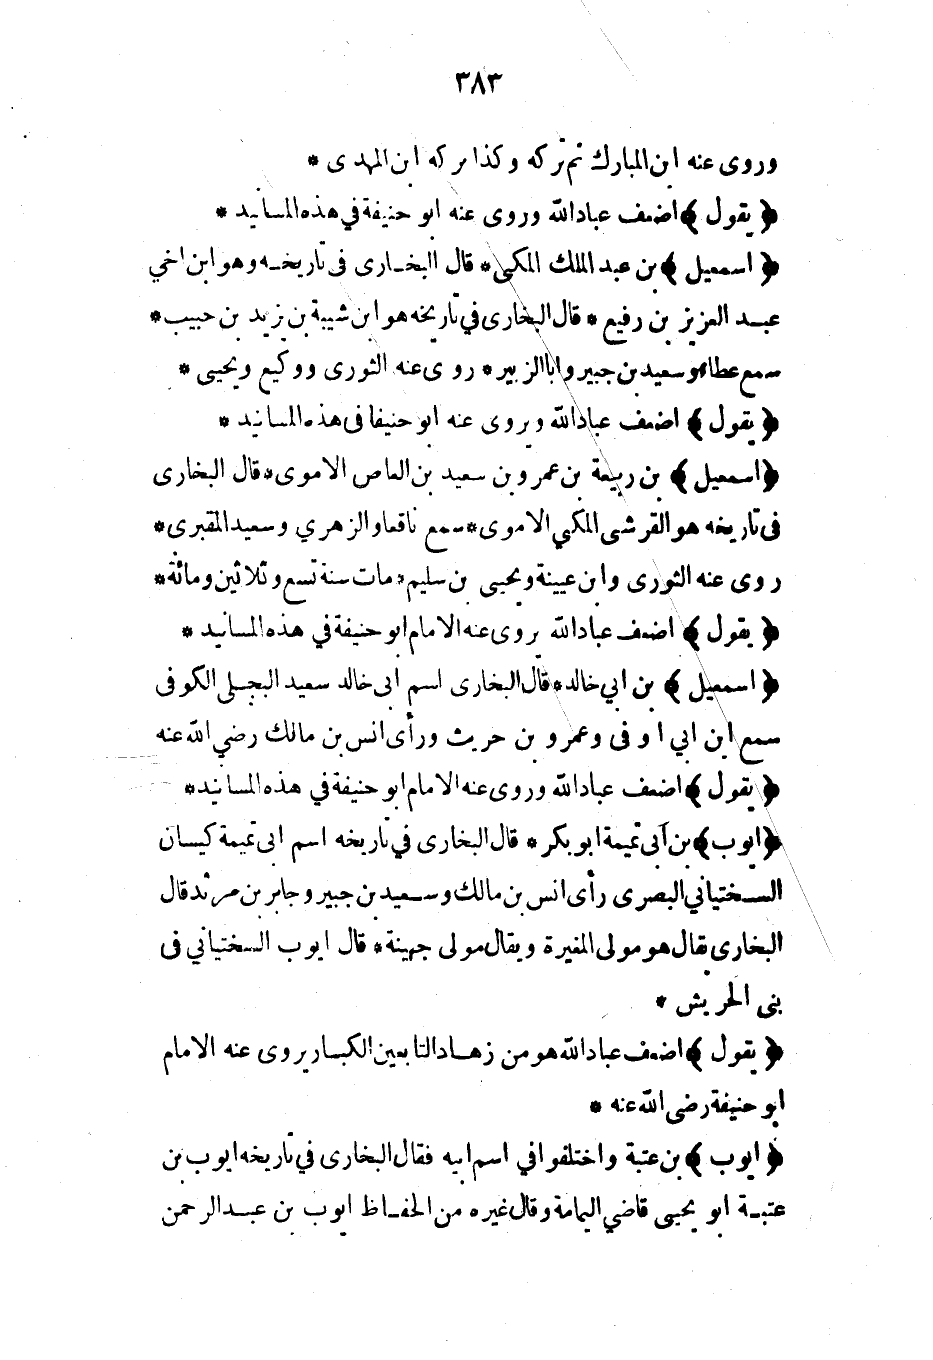 ٣٨٣
وروى عنه ابن المبارك ثم تركه وكذا تركه ابن المهدى *
﴿ يقول ﴾ اضعف عباد الله وروى عنه ابو حنيفة في هذه المسانيد *
﴿ اسمعيل ﴾ بن عبد الملك المكي * قال البخارى فى تاريخه وهو ابن اخي
عبد العزيز بن رفيع * قال البخارى في تاريخه هو ابن شيبة بن زيد بن حبيب *
سمع عطاء وسعيد بن جبير وابا الزبير * روى عنه الثورى ووكيع ويحيى *
﴿ يقول ﴾ اضعف عباد الله ويروى عنه ابو حنيفا فى هذه المسانيد *
﴿ اسمعيل ﴾ بن ربيعة بن عمرو بن سعيد بن العاص الاموى * قال البخارى
فى تاريخه هو القرشى المكي الاموى * سمع نافعا والزهري وسعيد المقبرى *
روى عنه الثورى وابن عيينة ويحيى بن سليم * مات سنة تسع وثلاثين ومائة *
﴿ يقول ﴾ اضعف عباد الله يروى عنه الامام ابو حنيفة في هذه المسانيد *
﴿ اسمعيل ﴾ بن ابي خالد * قال البخارى اسم ابى خالد سعيد البجلى الكوفى
سمع ابن ابي اوفى وعمرو بن حريث ورأى انس بن مالك رضي الله عنه
﴿ يقول ﴾ اضعف عباد الله وروى عنه الامام ابو حنيفة في هذه المسانيد *
﴿ ايوب ﴾ بن أبى تميمة ابو بكر * قال البخارى في تاريخه اسم ابى تميمة كيسان
السختياني البصرى رأى انس بن مالك وسعيد بن جبير وجابر بن مرثد قال
البخارى يقال هو مولى المغيرة ويقال مولى جهينة * قال ايوب السختياني فى
بنى الحريش *
﴿ يقول ﴾ اضعف عباد الله هو من زهاد التابعين الكبار يروى عنه الامام
ابو حنيفة رضى الله عنه *
﴿ ايوب ﴾ بن عتبة واختلفوا في اسم ابيه فقال البخارى في تاريخه ايوب بن
عتبة ابو يحيى قاضي اليمامة وقال غيره من الحفاظ ايوب بن عبد الرحمن